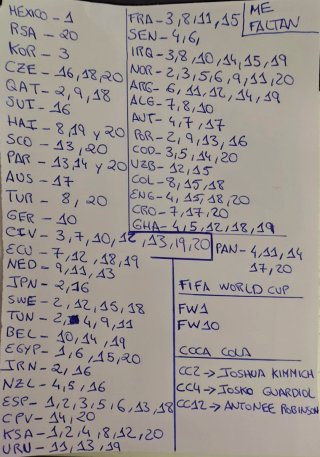 ME
FALTAN
MEXICO - 1
RSA - 20
KOR - 3
CZE - 16,18,20
QAT - 2,9,18
SUI - 16
HAI - 8,19 y 20
SCO - 13,20
PAR - 13,14 y 20
AUS - 17
TUR - 8, 20
GER - 10
CIV - 3,7,10,12,13,19,20
ECU - 7,12,18,19
NED - 9,11,13
JPN - 2,16
SWE - 2,12,15,18
TUN - 2,4,9,11
BEL - 10,14,19
EGYP - 1,6,15,20
IRN - 2,16
NZL - 4,5,16
ESP - 1,2,3,5,6,13,18
CPV - 14,20
KSA - 1,2,4,8,12,20
URU - 11,13,19
FRA - 3,8,11,15
SEN - 4,6,
IRQ - 3,8,10,14,15,19
NOR - 2,3,5,6,9,11,20
ARG - 6,11,12,14,19
ALG - 7,8,10
AUT - 4,7,17
POR - 2,9,13,16
COD - 3,5,14,20
UZB - 12,15
COL - 8,15,18
ENG - 4,15,18,20
CRO - 7,17,20
GHA - 4,5,12,18,19
PAN - 4,11,14
17,20
FIFA WORLD CUP
FW1
FW10
COCA COLA
CC2 → JOSHUA KIMMICH
CC4 → JOSKO GUARDIOL
CC12 → ANTONEE ROBINSON